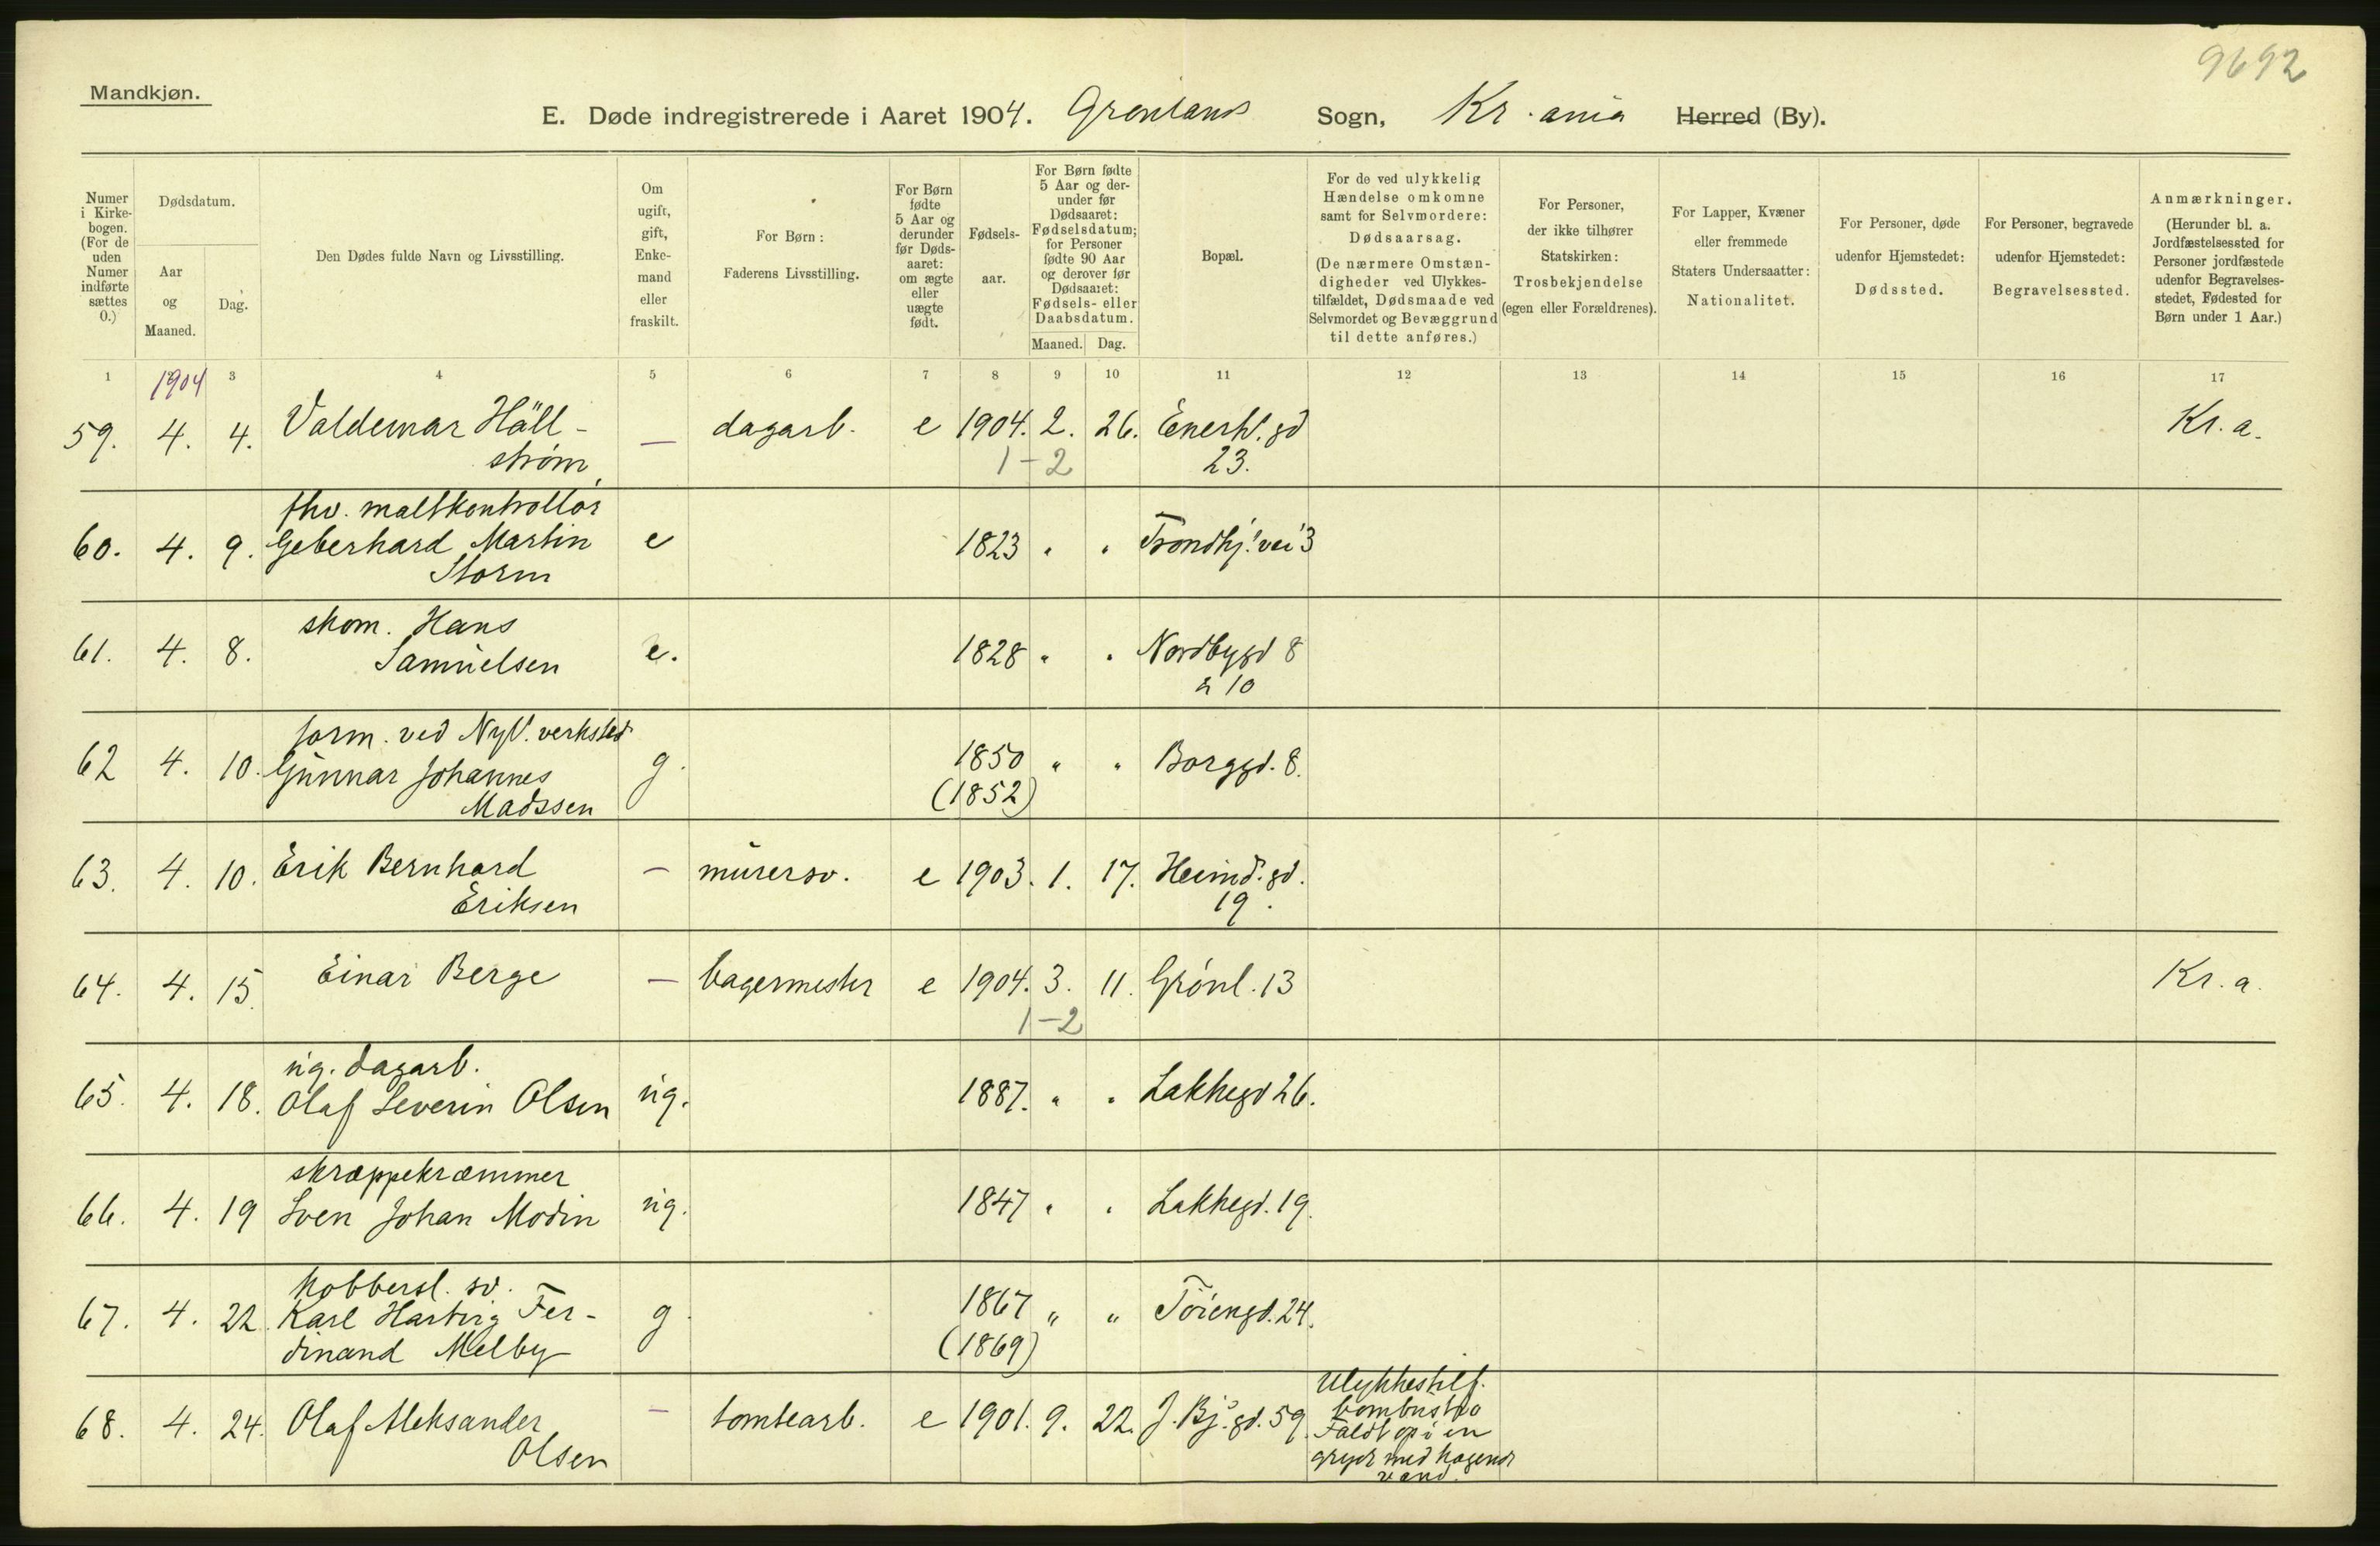 9692
Mandkjøn.
E. Døde indregistrerede i Aaret 1904. Grønlands Sogn, Kr.ania Herred (By).
Numer i Kirkebogen. (For de uden Numer indførte sættes 0.)
Dødsdatum.
Aar og Maaned.
Dag.
Den Dødes fulde Navn og Livsstilling.
Om ugift, gift, Enkemand eller fraskilt.
For Børn:
Faderens Livsstilling.
For Børn fødte 5 Aar og derunder før Dødsaaret: om ægte eller uægte født.
Fødselsaar.
For Børn fødte 5 Aar og derunder før Dødsaaret: Fødselsdatum; for Personer fødte 90 Aar og derover før Dødsaaret: Fødsels- eller Daabsdatum.
Maaned. Dag.
Bopæl.
For de ved ulykkelig Hændelse omkomne samt for Selvmordere: Dødsaarsag. (De nærmere Omstændigheder ved Ulykkestilfældet, Dødsmaade ved Selvmordet og Bevæggrund til dette anføres.)
For Personer, der ikke tilhører Statskirken: Trosbekjendelse (egen eller Forældrenes).
For Lapper, Kvæner eller fremmede Staters Undersaatter: Nationalitet.
For Personer, døde udenfor Hjemstedet: Dødssted.
For Personer, begravede udenfor Hjemstedet: Begravelsessted.
Anmærkninger. (Herunder bl. a. Jordfæstelsessted for Personer jordfæstede udenfor Begravelsesstedet, Fødested for Børn under 1 Aar.)
1 1904 3 4 5 6 7 8 9 10 11 12 13 14 15 16 17
59. 4. 4. Valdemar Häll- — dagarb. e 1904. 2. 26. Enerh. gd Kr. a.
strøm 1-2 23.
fhv. maltkontrollør
60. 4. 9. Geberhard Martin e 1823 " " Trondhj. vei 3
Storm
skom. Hans
61. 4. 8. Samuelsen e. 1828 " " Nordbygd 8
a 10
form. ved Nyl. verksted
62 4. 10. Gunnar Johannes g. 1850 " " Borggd. 8.
Madssen (1852)
63. 4. 10. Erik Bernhard — murersv. e 1903. 1. 17. Heimd. gd.
Eriksen 19.
64. 4. 15. Einar Berge — bagermester e 1904. 3. 11. Grønl. 13 Kr. a.
1-2
ug. dagarb.
65. 4. 18. Olaf Severin Olsen ug. 1887. " " Lakkegd 26.
skræppekræmmer
66. 4. 19 Sven Johan Modin ug. 1847 " " Lakkegd. 19.
kobbersl. sv.
67. 4. 22. Karl Hartvig Fer- g. 1867 " " Tøiengd. 24.
dinand Melby (1869)
68. 4. 24. Olaf Aleksander — tomtearb. e 1901. 9. 22. J. Bj. gd. 59.
Olsen
Ulykkestilf.
combustio
Faldt op i en
gryde med kogende
vand.